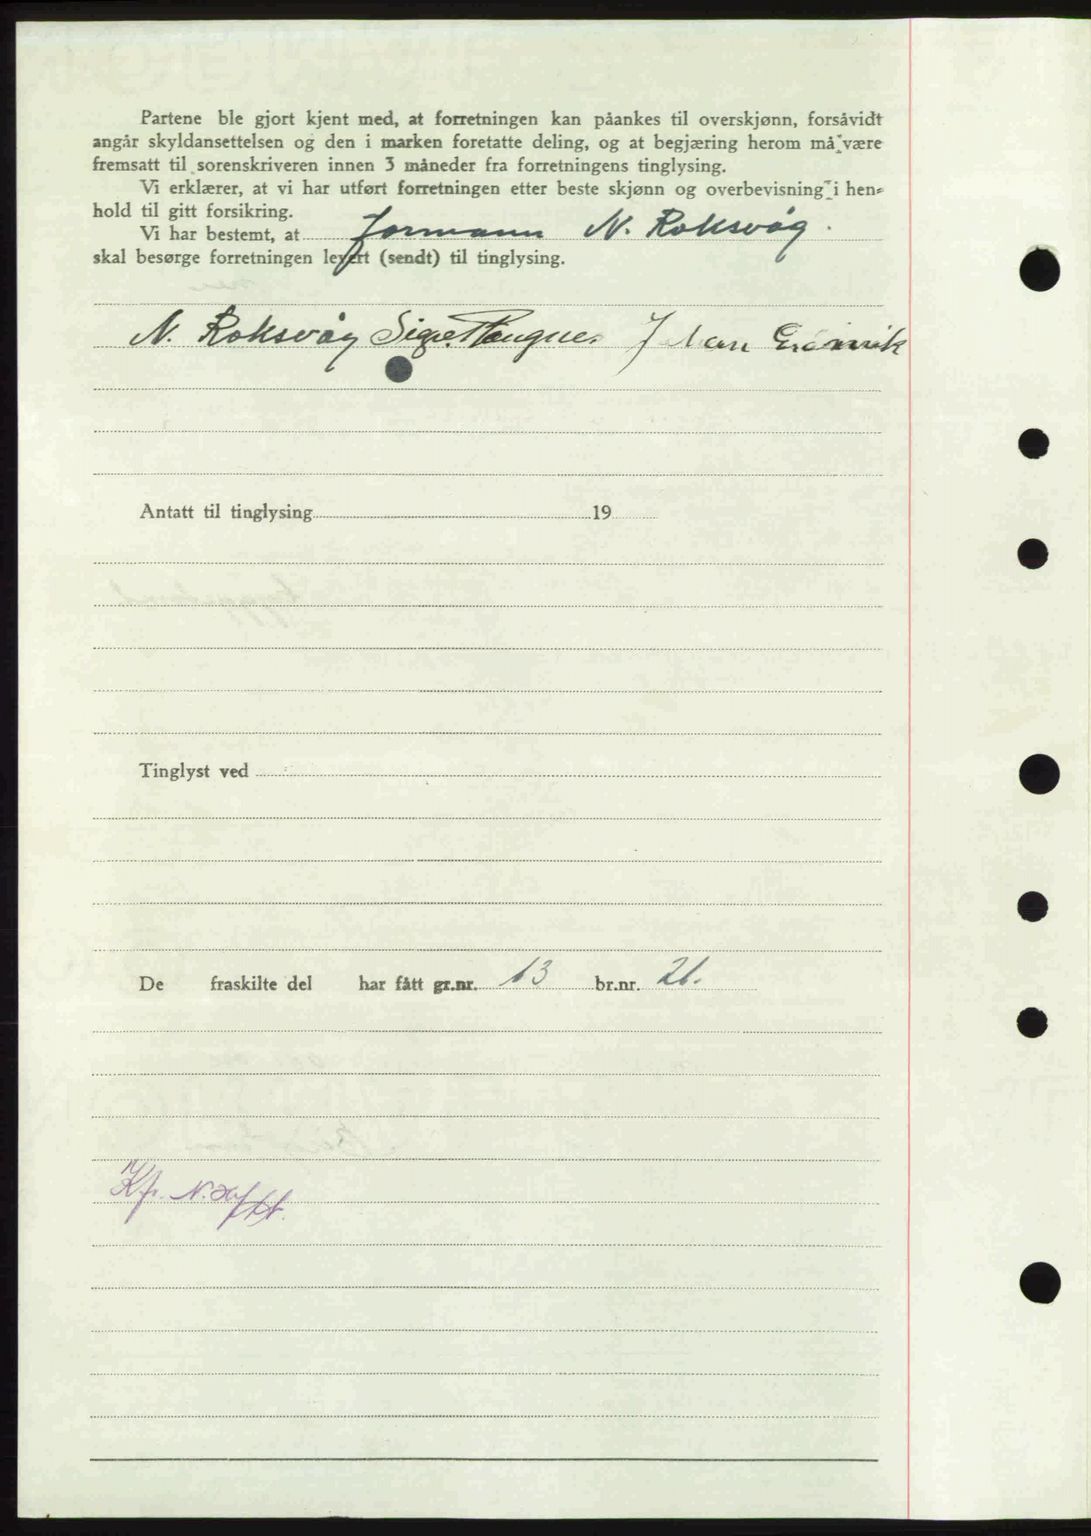 Partene ble gjort kjent med, at forretningen kan påankes til overskjønn, forsåvidt
angår skyldansettelsen og den i marken foretatte deling, og at begjæring herom må være
fremsatt til sorenskriveren innen 3 måneder fra forretningens tinglysing.
Vi erklærer, at vi har utført forretningen etter beste skjønn og overbevisning i hen-
hold til gitt forsikring.
Vi har bestemt, at formann N. Roksvåg.
skal besørge forretningen levert (sendt) til tinglysing.
N. Roksvåg
Antatt til tinglysing 19
Tinglyst ved
De fraskilte del har fått gr.nr. 13 br.nr. 26.